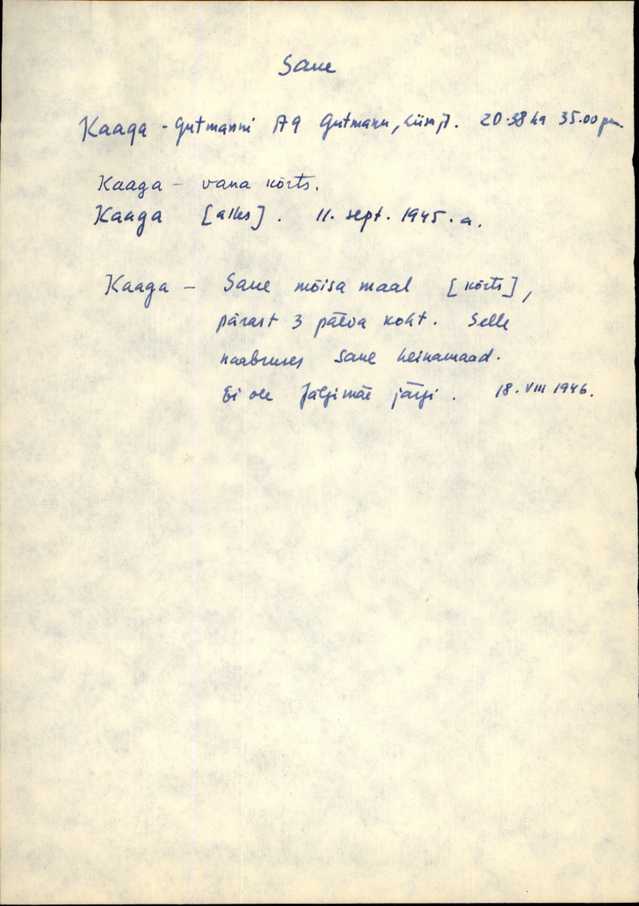 Saue
Kaaga - Gutmanni A9 Gutmann, 20.38 ha 35.00
Kaaga - vana kõrts.
Kaaga [alles]. 11. sept. 1945. a.
Kaaga - Saue mõisa maal [kõrts],
pärast 3 päeva koht. Selle
naabruses Saue heinamaad.
Ei ole Jälgimäe järgi. 18. VIII 1946.